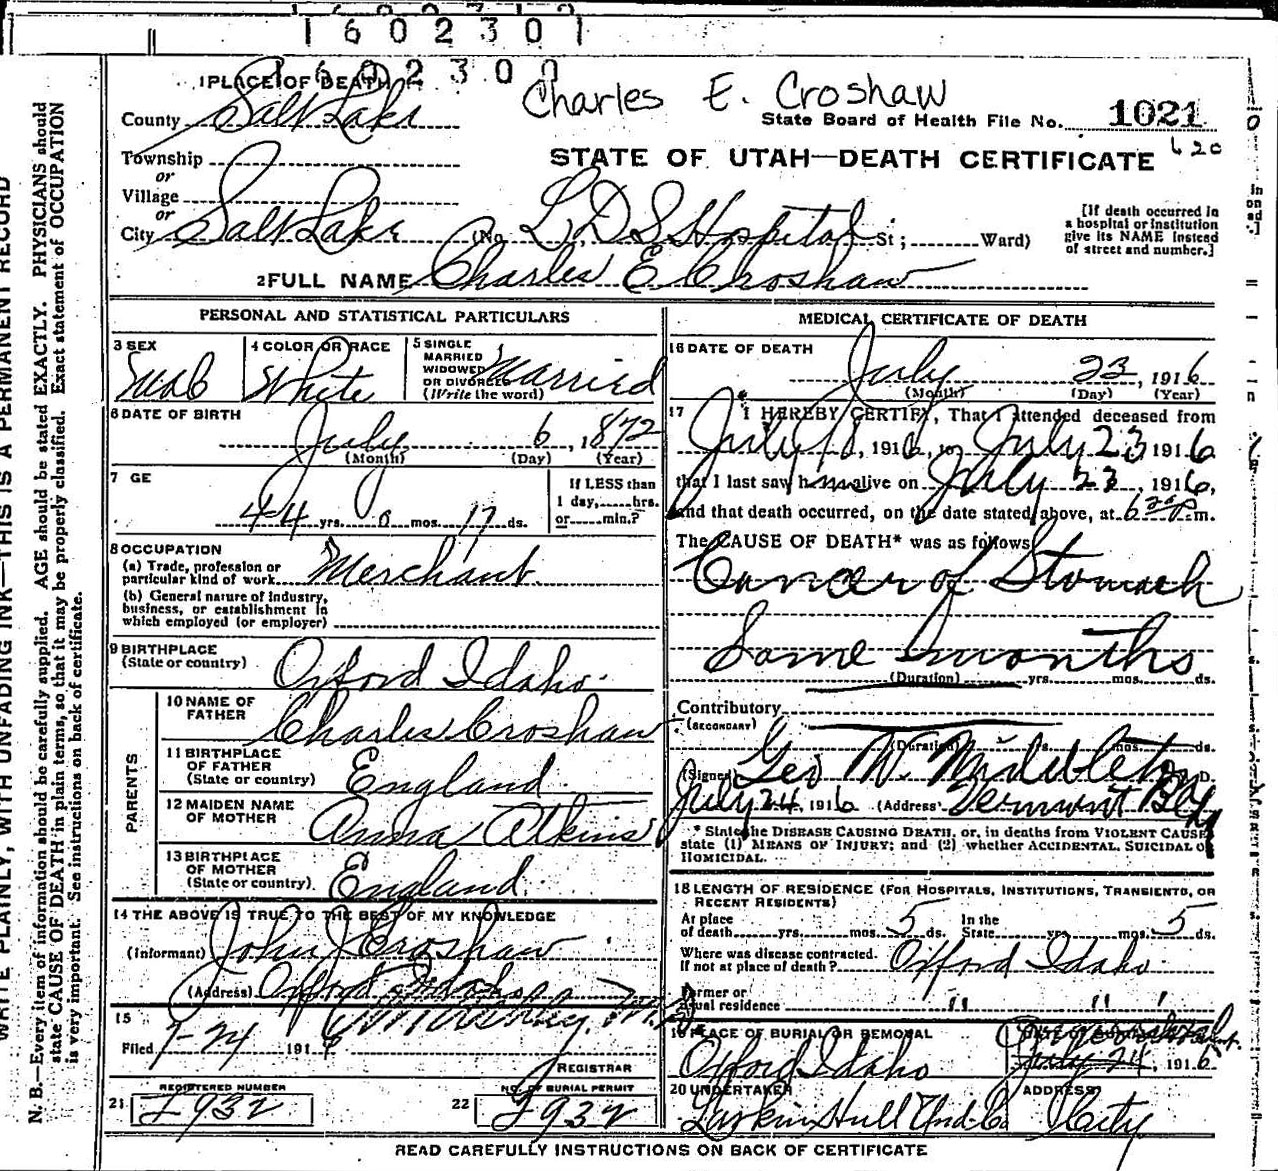 1602301
160230
1 PLACE OF DEATH
Charles E. Croshaw
County Salt Lake
State Board of Health File No. 1021
620
Township
or
STATE OF UTAH—DEATH CERTIFICATE
Village
or
City Salt Lake (No. L.D.S Hospital St; Ward)
[If death occurred in a hospital or institution give its NAME instead of street and number.]
2 FULL NAME Charles E Croshaw
PERSONAL AND STATISTICAL PARTICULARS
3 SEX Male
4 COLOR OR RACE White
5 SINGLE MARRIED WIDOWED OR DIVORCED (Write the word) Married
6 DATE OF BIRTH
July 6, 1872
(Month) (Day) (Year)
7 GE
44 yrs. 0 mos. 17 ds.
If LESS than 1 day,......hrs. or......min.?
8 OCCUPATION
(a) Trade, profession or particular kind of work Merchant
(b) General nature of industry, business, or establishment in which employed (or employer)
9 BIRTHPLACE
(State or country) Oxford Idaho
PARENTS
10 NAME OF FATHER Charles Croshaw
11 BIRTHPLACE OF FATHER (State or country) England
12 MAIDEN NAME OF MOTHER Anna Atkins
13 BIRTHPLACE OF MOTHER (State or country) England
14 THE ABOVE IS TRUE TO THE BEST OF MY KNOWLEDGE
(Informant) John J Croshaw
(Address) Oxford Idaho
15
Filed 7-24 1916 M.D.
REGISTRAR
REGISTERED NUMBER
21 L932
NO. OF BURIAL PERMIT
22 L932
MEDICAL CERTIFICATE OF DEATH
16 DATE OF DEATH
July 23, 1916
(Month) (Day) (Year)
17 I HEREBY CERTIFY, That I attended deceased from
July 18, 1916, to July 23 1916
that I last saw him alive on July 23, 1916,
and that death occurred, on the date stated above, at 6 P m.
The CAUSE OF DEATH* was as follows
Cancer of Stomach
Some months
(Duration) yrs. mos. ds.
Contributory
(SECONDARY)
(Duration) yrs. mos. ds.
(Signed) Geo W. Middleton M. D.
July 24, 1916 (Address) Vermont Bldg
* State the DISEASE CAUSING DEATH, or, in deaths from VIOLENT CAUSES
state (1) MEANS OF INJURY; and (2) whether ACCIDENTAL, SUICIDAL or
HOMICIDAL.
18 LENGTH OF RESIDENCE (FOR HOSPITALS, INSTITUTIONS, TRANSIENTS, OR
RECENT RESIDENTS)
At place of death yrs. mos. 5 ds. In the State yrs. mos. 5 ds.
Where was disease contracted, If not at place of death? Oxford Idaho
Former or usual residence " " "
19 PLACE OF BURIAL OR REMOVAL
Oxford Idaho
July 24, 1916
20 UNDERTAKER
Larkin Hull Und. Co
ADDRESS
City
READ CAREFULLY INSTRUCTIONS ON BACK OF CERTIFICATE
WRITE PLAINLY, WITH UNFADING INK—THIS IS A PERMANENT RECORD
N. B.—Every item of information should be carefully supplied. AGE should be stated EXACTLY. PHYSICIANS should
state CAUSE OF DEATH in plain terms, so that it may be properly classified. Exact statement of OCCUPATION
is very important. See instructions on back of certificate.